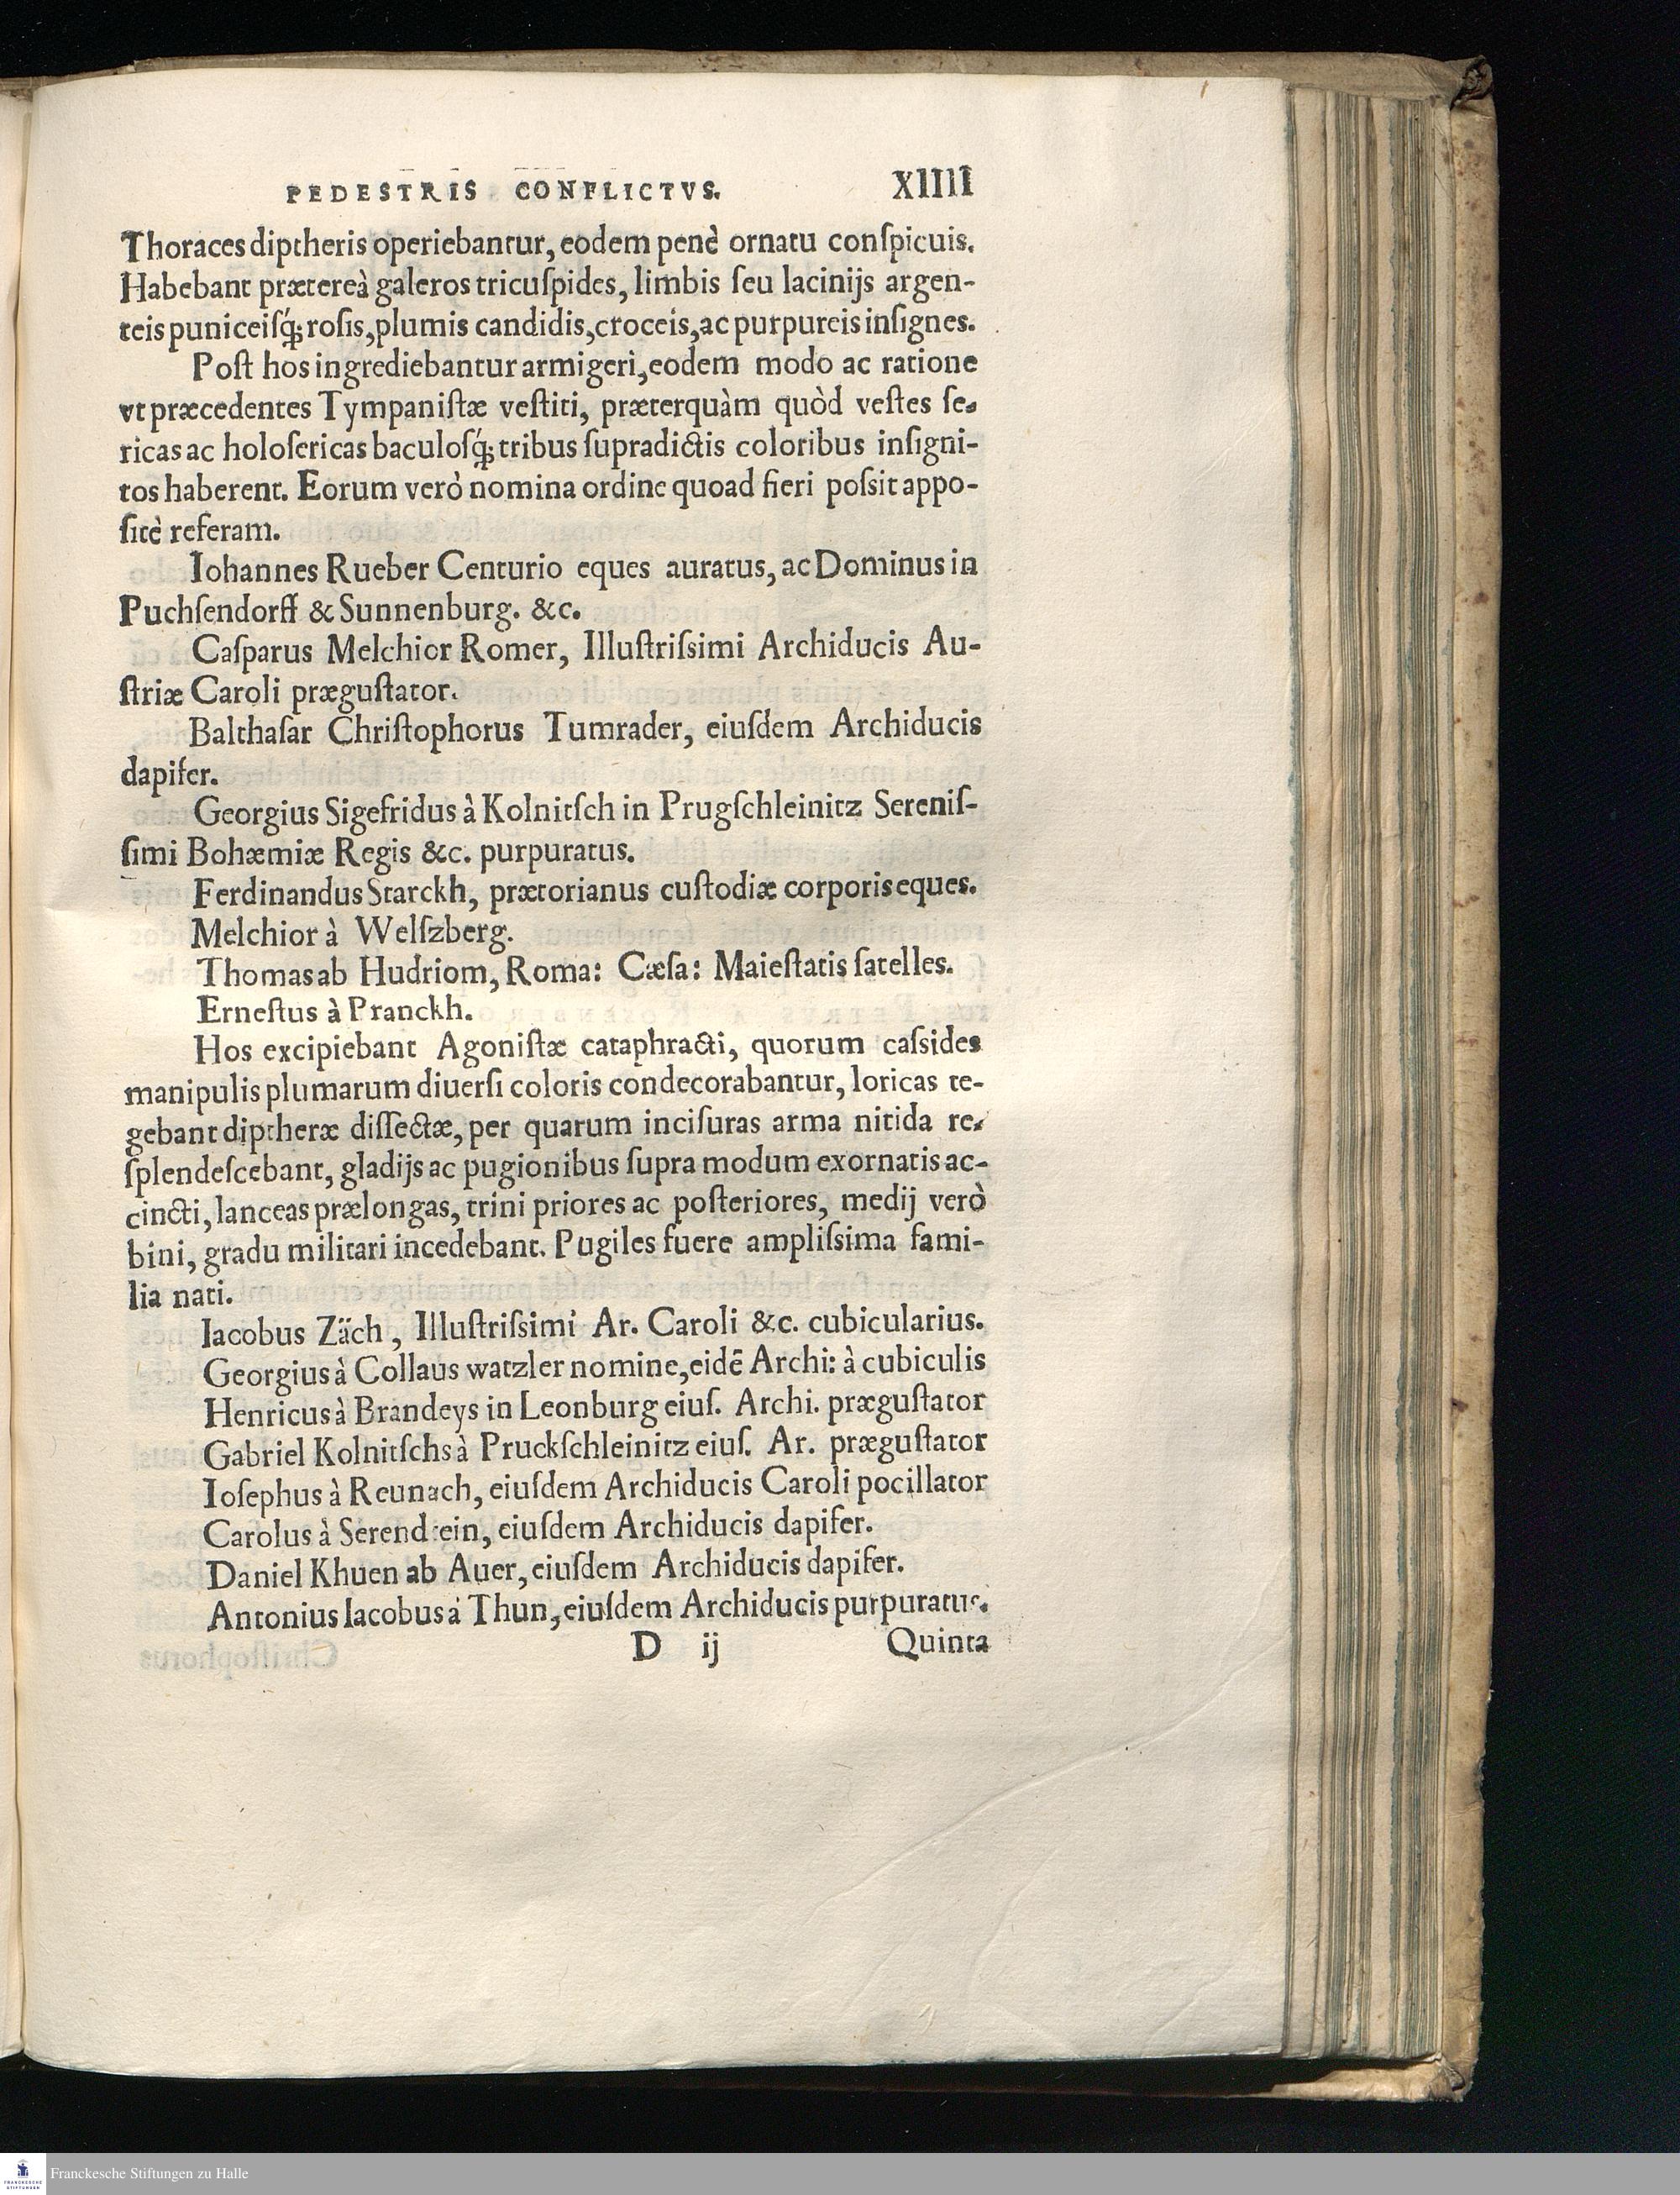 PEDESTRIS CONFLICTVS. XIIII
Thoraces diptheris operiebantur, eodem penè ornatu conſpicuis.
Habebant prætereà galeros tricuſpides, limbis ſeu lacinijs argen-
teis puniceiſq́; roſis, plumis candidis, croceis, ac purpureis inſignes.
Poſt hos ingrediebantur armigeri, eodem modo ac ratione
vt præcedentes Tympaniſtæ veſtiti, præterquàm quòd veſtes ſe-
ricas ac holoſericas baculoſq́; tribus ſupradictis coloribus inſigni-
tos haberent. Eorum verò nomina ordine quoad fieri poſsit appo-
ſitè referam.
Iohannes Rueber Centurio eques auratus, ac Dominus in
Puchſendorff & Sunnenburg. &c.
Caſparus Melchior Romer, Illuſtriſsimi Archiducis Au-
ſtriæ Caroli præguſtator.
Balthaſar Chriſtophorus Tumrader, eiuſdem Archiducis
dapifer.
Georgius Sigefridus à Kolnitſch in Prugſchleinitz Sereniſ-
ſimi Bohæmiæ Regis &c. purpuratus.
Ferdinandus Starckh, prætorianus cuſtodiæ corporis eques.
Melchior à Welſzberg.
Thomas ab Hudriom, Roma: Cæſa: Maieſtatis ſatelles.
Erneſtus à Pranckh.
Hos excipiebant Agoniſtæ cataphracti, quorum caſsides
manipulis plumarum diuerſi coloris condecorabantur, loricas te-
gebant diptheræ diſſectæ, per quarum inciſuras arma nitida re-
ſplendeſcebant, gladijs ac pugionibus ſupra modum exornatis ac-
cincti, lanceas prælongas, trini priores ac poſteriores, medij verò
bini, gradu militari incedebant. Pugiles fuere ampliſsima fami-
lia nati.
Iacobus Zäch, Illuſtriſsimi Ar. Caroli &c. cubicularius.
Georgius à Collaus watzler nomine, eidē Archi: à cubiculis
Henricus à Brandeys in Leonburg eiuſ. Archi. præguſtator
Gabriel Kolnitſchs à Pruckſchleinitz eiuſ. Ar. præguſtator
Ioſephus à Reunach, eiuſdem Archiducis Caroli pocillator
Carolus à eiuſdem Archiducis dapifer.
Daniel Khuen ab Auer, eiuſdem Archiducis dapifer.
Antonius Iacobus à Thun, eiuſdem Archiducis purpuratus.
D ij Quinta
Franckesche Stiftungen zu Halle